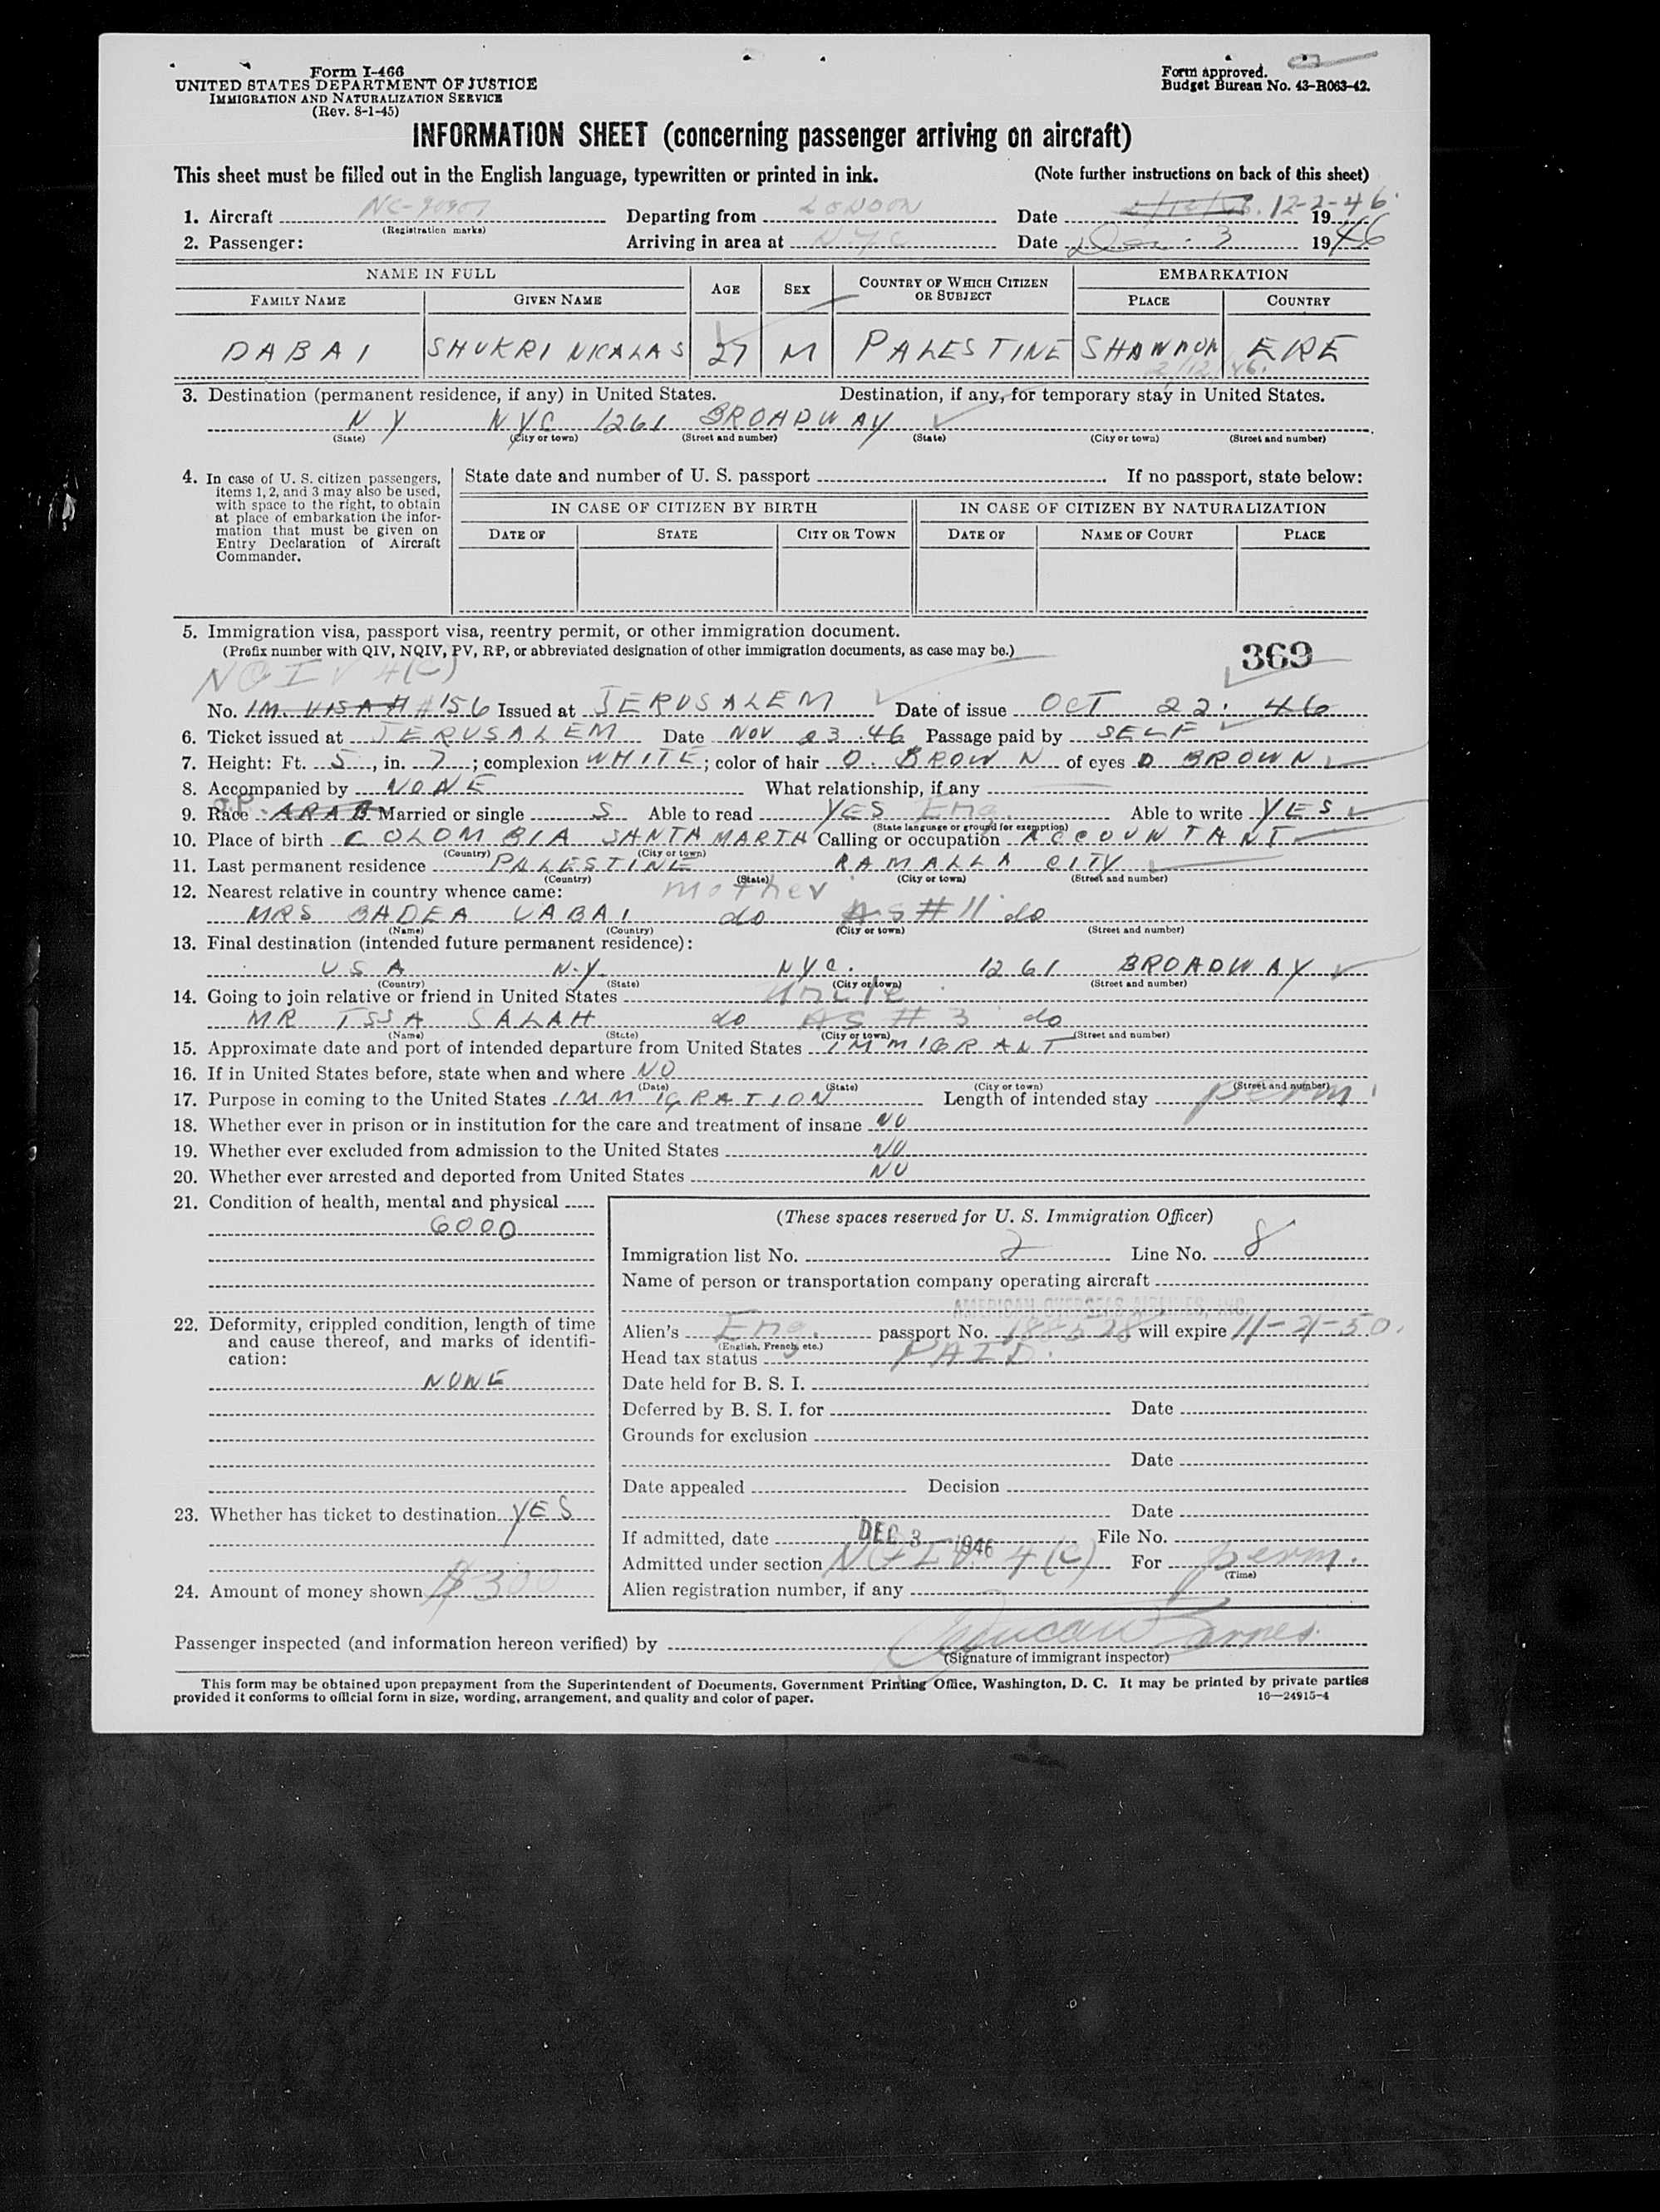 Form I-466
UNITED STATES DEPARTMENT OF JUSTICE
IMMIGRATION AND NATURALIZATION SERVICE
(Rev. 8-1-45)
Form approved.
Budget Bureau No. 43-R063-42.
INFORMATION SHEET (concerning passenger arriving on aircraft)
This sheet must be filled out in the English language, typewritten or printed in ink. (Note further instructions on back of this sheet)
1. Aircraft NC-90907 Departing from LONDON Date 12-2-46. 19
(Registration marks)
2. Passenger: Arriving in area at N.Y.C Date Dec. 3 1946
NAME IN FULL AGE SEX COUNTRY OF WHICH CITIZEN OR SUBJECT EMBARKATION
FAMILY NAME GIVEN NAME PLACE COUNTRY
DABAI SHUKRI NICALAS 27 M PALESTINE SHANNON EIRE
2/12/46.
3. Destination (permanent residence, if any) in United States. Destination, if any, for temporary stay in United States.
N Y NYC 1261 BROADWAY
(State) (City or town) (Street and number) (State) (City or town) (Street and number)
4. In case of U. S. citizen passengers, items 1, 2, and 3 may also be used, with space to the right, to obtain at place of embarkation the information that must be given on Entry Declaration of Aircraft Commander.
State date and number of U. S. passport. If no passport, state below:
IN CASE OF CITIZEN BY BIRTH IN CASE OF CITIZEN BY NATURALIZATION
DATE OF STATE CITY OR TOWN DATE OF NAME OF COURT PLACE
5. Immigration visa, passport visa, reentry permit, or other immigration document.
(Prefix number with QIV, NQIV, PV, RP, or abbreviated designation of other immigration documents, as case may be.)
369
NQIV 4(C)
No. IM. VISA # #156 Issued at JERUSALEM Date of issue OCT 22. 46
6. Ticket issued at JERUSALEM Date NOV 23.46 Passage paid by SELF
7. Height: Ft. 5, in. 7; complexion WHITE; color of hair D. BROWN of eyes D BROWN
8. Accompanied by NONE What relationship, if any
9. Race ARAB Married or single S Able to read YES Eng. Able to write YES
(State language or ground for exemption)
10. Place of birth COLOMBIA SANTA MARTA Calling or occupation ACCOUNTANT
(Country) (City or town)
11. Last permanent residence PALESTINE RAMALLA CITY
(Country) (State) (City or town) (Street and number)
12. Nearest relative in country whence came: mother
MRS BADEA DABAI do AS #11 do
(Name) (Country) (City or town) (Street and number)
13. Final destination (intended future permanent residence):
USA N.Y. NYC. 1261 BROADWAY
(Country) (State) (City or town) (Street and number)
14. Going to join relative or friend in United States Uncle
MR ISSA SALAH do AS #3 do
(Name) (State) (City or town) (Street and number)
15. Approximate date and port of intended departure from United States IMMIGRANT
16. If in United States before, state when and where NO
(Date) (State) (City or town) (Street and number)
17. Purpose in coming to the United States IMMIGRATION Length of intended stay perm.
18. Whether ever in prison or in institution for the care and treatment of insane NO
19. Whether ever excluded from admission to the United States NO
20. Whether ever arrested and deported from United States NO
21. Condition of health, mental and physical
GOOD
22. Deformity, crippled condition, length of time and cause thereof, and marks of identification:
NONE
23. Whether has ticket to destination YES
24. Amount of money shown $300
(These spaces reserved for U. S. Immigration Officer)
Immigration list No. 2 Line No. 8
Name of person or transportation company operating aircraft
AMERICAN OVERSEAS AIRLINES, INC.
Alien's Eng. passport No. 188528 will expire 11-21-50.
(English, French, etc.)
Head tax status PAID.
Date held for B. S. I.
Deferred by B. S. I. for Date
Grounds for exclusion
Date
Date appealed Decision
Date
If admitted, date DEC 3 1946 File No.
Admitted under section NQIV 4(C) For perm.
(Time)
Alien registration number, if any
Passenger inspected (and information hereon verified) by
(Signature of immigrant inspector)
This form may be obtained upon prepayment from the Superintendent of Documents, Government Printing Office, Washington, D. C. It may be printed by private parties
provided it conforms to official form in size, wording, arrangement, and quality and color of paper. 16—24915-4